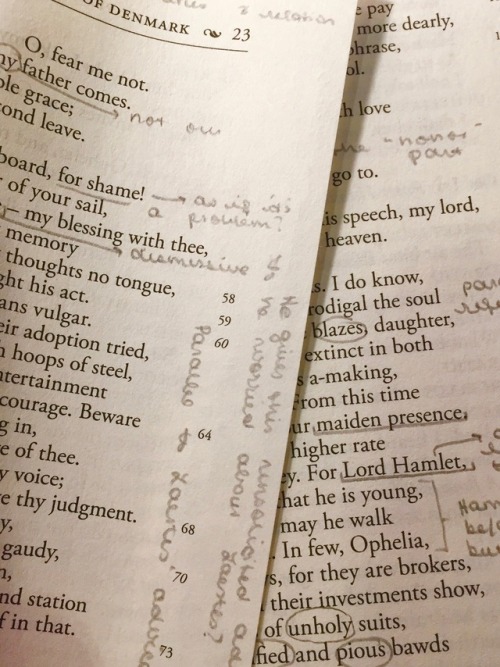 OF DENMARK 23
relation
O, fear me not.
my father comes.
ble grace;
not our
ond leave.
board, for shame!
as if it's
a problem?
of your sail,
my blessing with thee,
dismissive
memory
thoughts no tongue,
ght his act.
58
ans vulgar.
59
eir adoption tried,
60
hoops of steel,
ntertainment
courage. Beware
64
g in,
e of thee.
voice;
e thy judgment.
68
y,
gaudy,
70
nd station
f in that.
73
Parallel to Laertes' advice
He gives this unsolicited
worried about Laertes?
e pay
more dearly,
phrase,
ol.
h love
the "honor"
part
go to.
is speech, my lord,
heaven.
s. I do know,
rodigal the soul
blazes, daughter,
extinct in both
s a-making,
From this time
ur maiden presence,
higher rate
ey. For Lord Hamlet,
hat he is young,
may he walk
. In few, Ophelia,
s, for they are brokers,
their investments show,
of unholy suits,
fied and pious bawds